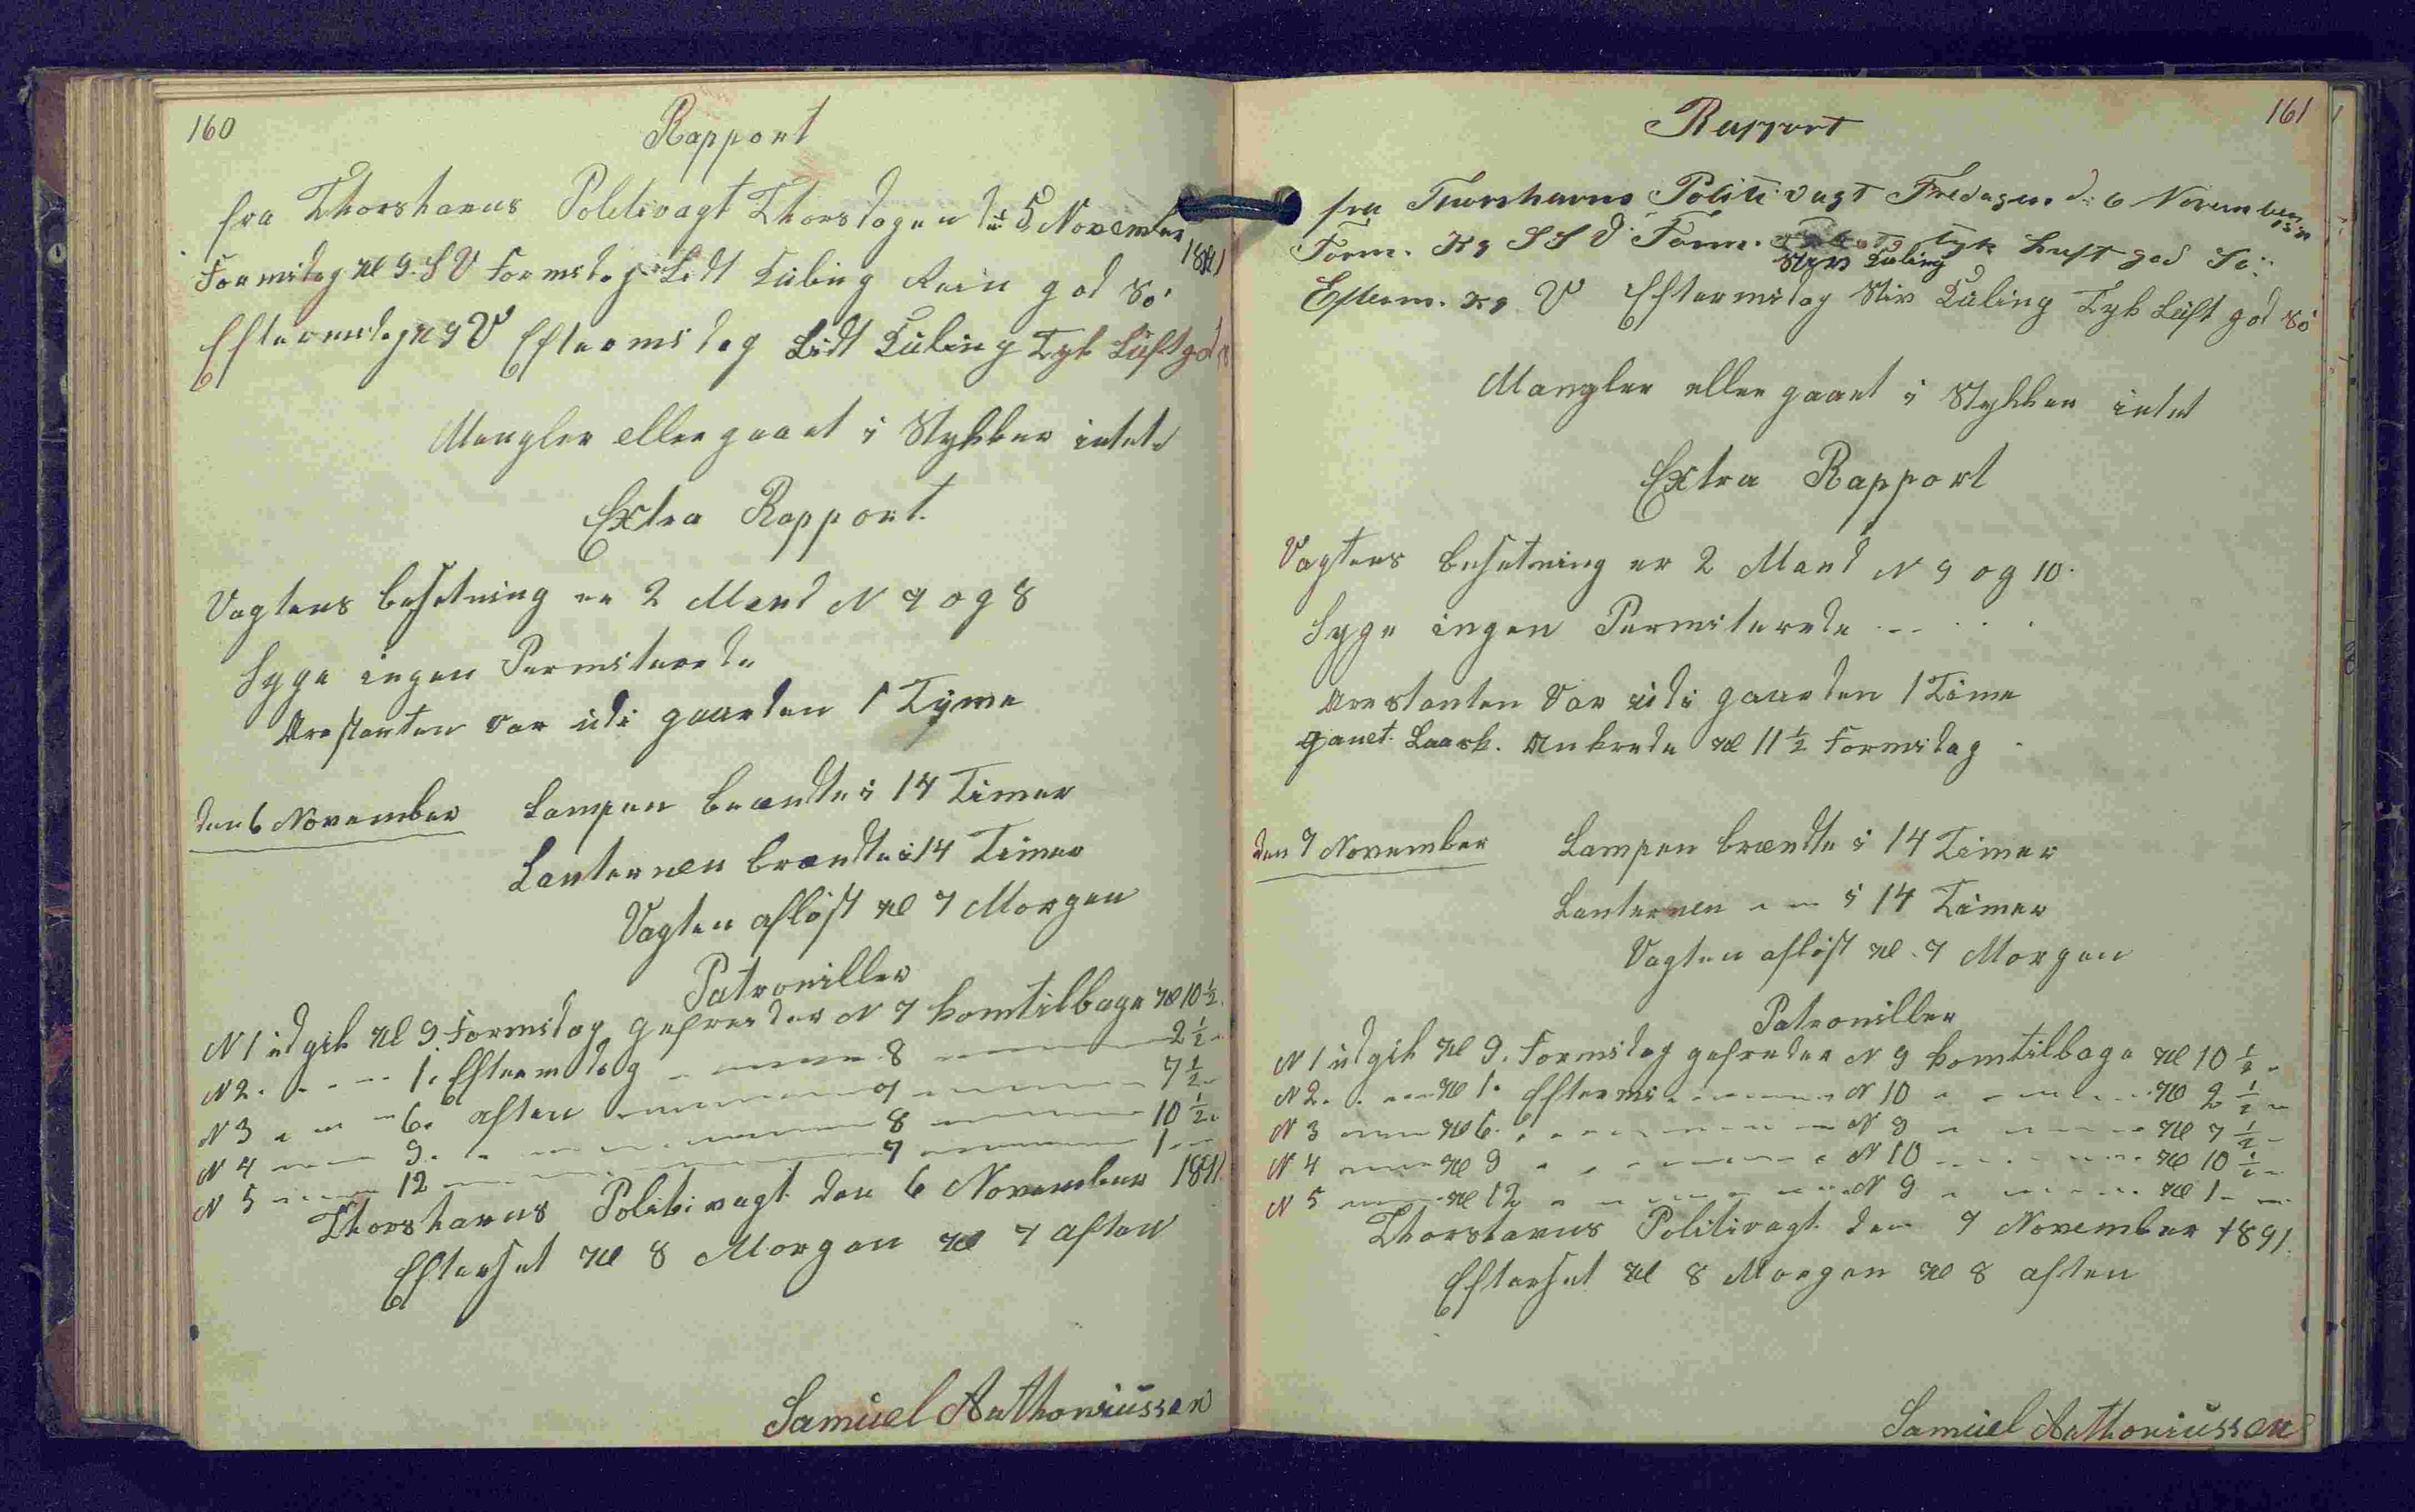 160
Rapport
fra Thorshavns Politivagt Thorsdagen den 5 November 1891
Formidag Kl 9. S V Formidag Lidt Kuling Rein god Sö
Eftermidag Kl 9 V Eftermidag Lidt Kuling Tyk Luft god
Mangler eller gaaet i Stykker intet
Extra Rapport.
Vagtens besetning er 2 Mand N 7 og 8
Syge ingen Permiterede
Arestanten var udi gaarden 1 Tyme
den 6 November Lampen brændte i 14 Timer
Lanternen brændte i 14 Timer
Vagten afløst Kl 7 Morgen
Patrouiller
N 1 udgik Kl 9 Formidag gefreider N 7 komtilbage Kl 10 ½
N 2 1. Eftermidag 8 2 ½
N 3 6. aften 7 7 ½
N 4 9. 8 10 ½
N 5 12 7 1
Thorshavns Politivagt den 6 November 1891
Efterset Kl 8 Morgen Kl 7 aften
Samuel Anthoniussen
161
Rapport
fra Thorshavns Politivagt Fredagen d: 6 November
Form. K 9 S S V Form. tyk Luft god Sö
Stiv Kuling
Efterm. K 9 V Eftermidag Stiv Kuling Tyk Luft god Sö
Mangler eller gaaet i Stykker intet
Extra Rapport
Vagtens besetning er 2 Mand N 9 og 10.
Syge ingen Permiterede
Arestanten var udi gaarden 1 Time
Ankrede Kl 11 ½ Formidag
den 7 November Lampen brændte i 14 Timer
Lanternen i 14 Timer
Vagten afløst Kl. 7 Morgen
Patrouiller
N 1 udgik Kl 9. Formidag gefreder N 9 komtilbage Kl 10 ½
N 2 Kl 1. Eftermi N 10 Kl 2 ½
N 3 Kl 6 N 9 Kl 7 ½
N 4 Kl 9 N 10 Kl 10 ½
N 5 Kl 12 N 9 Kl 1
Thorshavns Politivagt den 7 November 1891.
Efterset Kl 8 Morgen Kl 8 aften
Samuel Anthoniussen